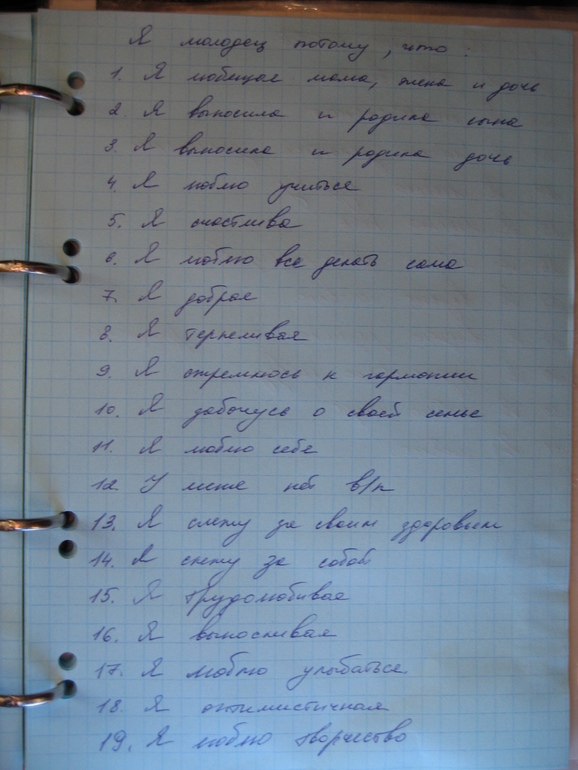 Я молодец потому, что:
1. Я любящая мама, жена и дочь
2. Я выносила и родила сына
3. Я выносила и родила дочь
4. Я люблю учиться
5. Я счастлива
6. Я люблю все делать сама
7. Я добрая
8. Я терпеливая
9. Я стремлюсь к гармонии
10. Я забочусь о своей семье
11. Я люблю себя
12. У меня нет в/п
13. Я слежу за своим здоровьем
14. Я слежу за собой
15. Я трудолюбивая
16. Я выносливая
17. Я люблю улыбаться
18. Я оптимистичная
19. Я люблю творчество